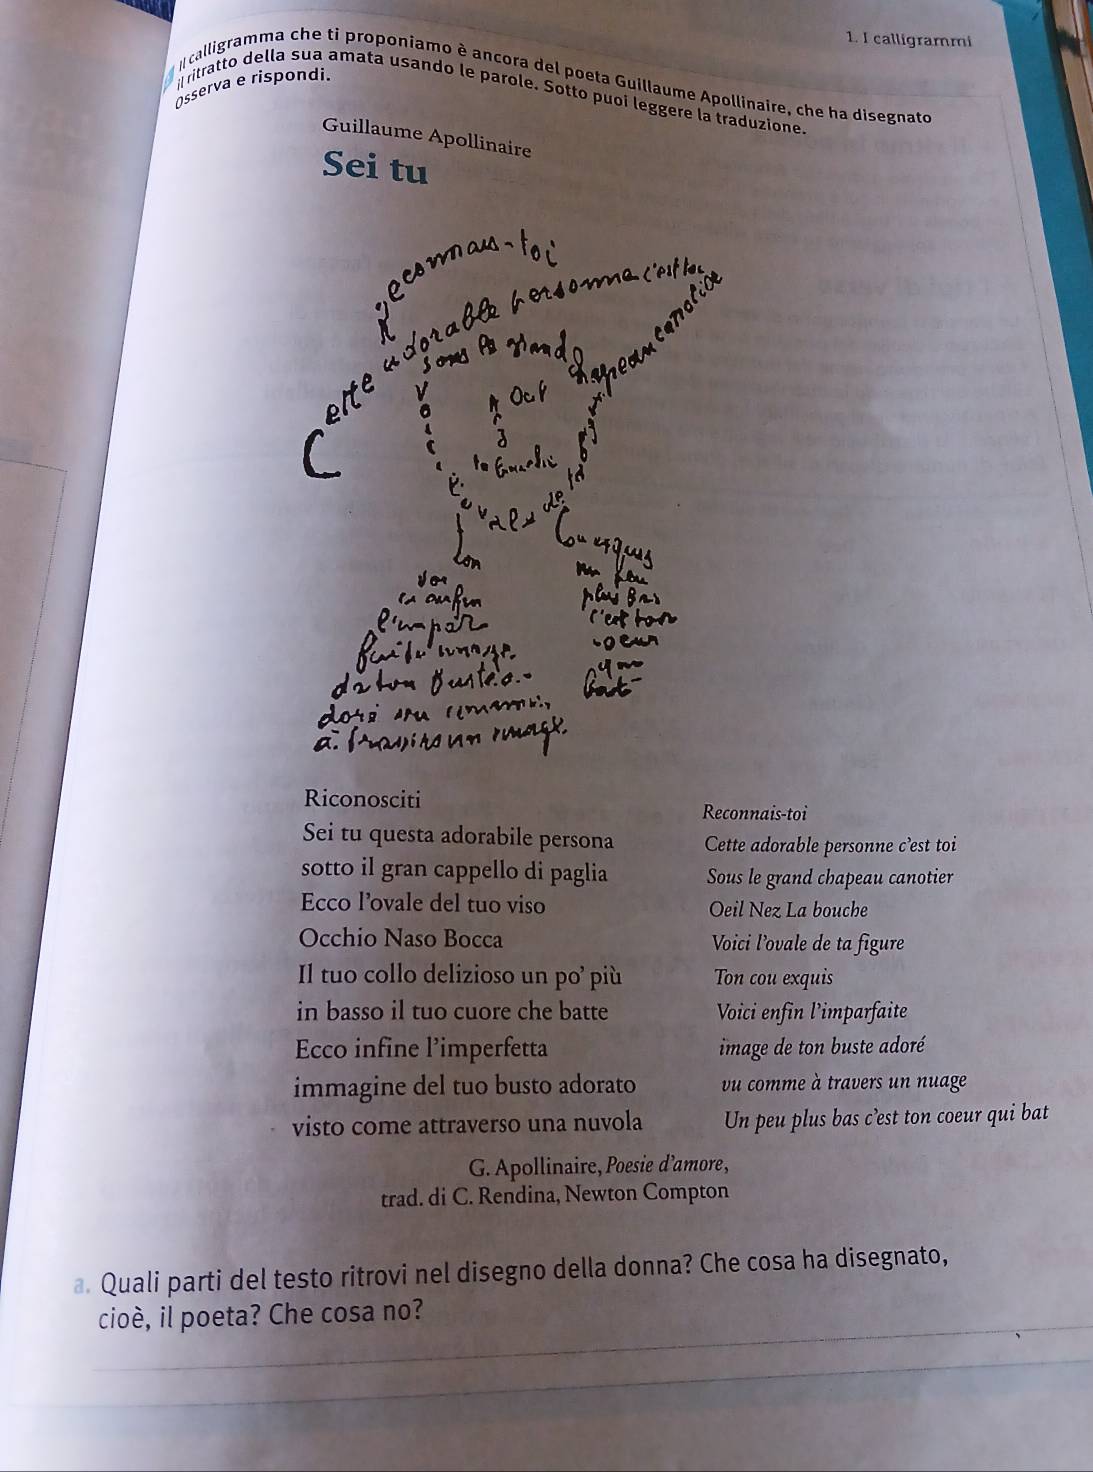 1. I calligrammi
Il calligramma che ti proponiamo è ancora del poeta Guillaume Apollinaire, che ha disegnato
il ritratto della sua amata usando le parole. Sotto puoi leggere la traduzione.
Osserva e rispondi.
Guillaume Apollinaire
Sei tu
Reconnais-toi
Cette adorable personne c'est toi
Sous le grand chapeau canotier
Oeil
Nez
la bouche
Voici l'ovale de ta figure
Ton
Cou exquis
Voi
ci enfin
l'impar
faite image
de ton buste a
doré vu comme
à travers un nuage
un peu
plus bas
c'est ton
coeur
qui
bat
Riconosciti
Sei tu questa adorabile persona
sotto il gran cappello di paglia
Ecco l'ovale del tuo viso
Occhio Naso Bocca
Il tuo collo delizioso un po' più
in basso il tuo cuore che batte
Ecco infine l'imperfetta
immagine del tuo busto adorato
visto come attraverso una nuvola
Reconnais-toi
Cette adorable personne c'est toi
Sous le grand chapeau canotier
Oeil Nez La bouche
Voici l'ovale de ta figure
Ton cou exquis
Voici enfin l'imparfaite
image de ton buste adoré
vu comme à travers un nuage
Un peu plus bas c'est ton coeur qui bat
G. Apollinaire, Poesie d'amore,
trad. di C. Rendina, Newton Compton
a. Quali parti del testo ritrovi nel disegno della donna? Che cosa ha disegnato,
cioè, il poeta? Che cosa no?